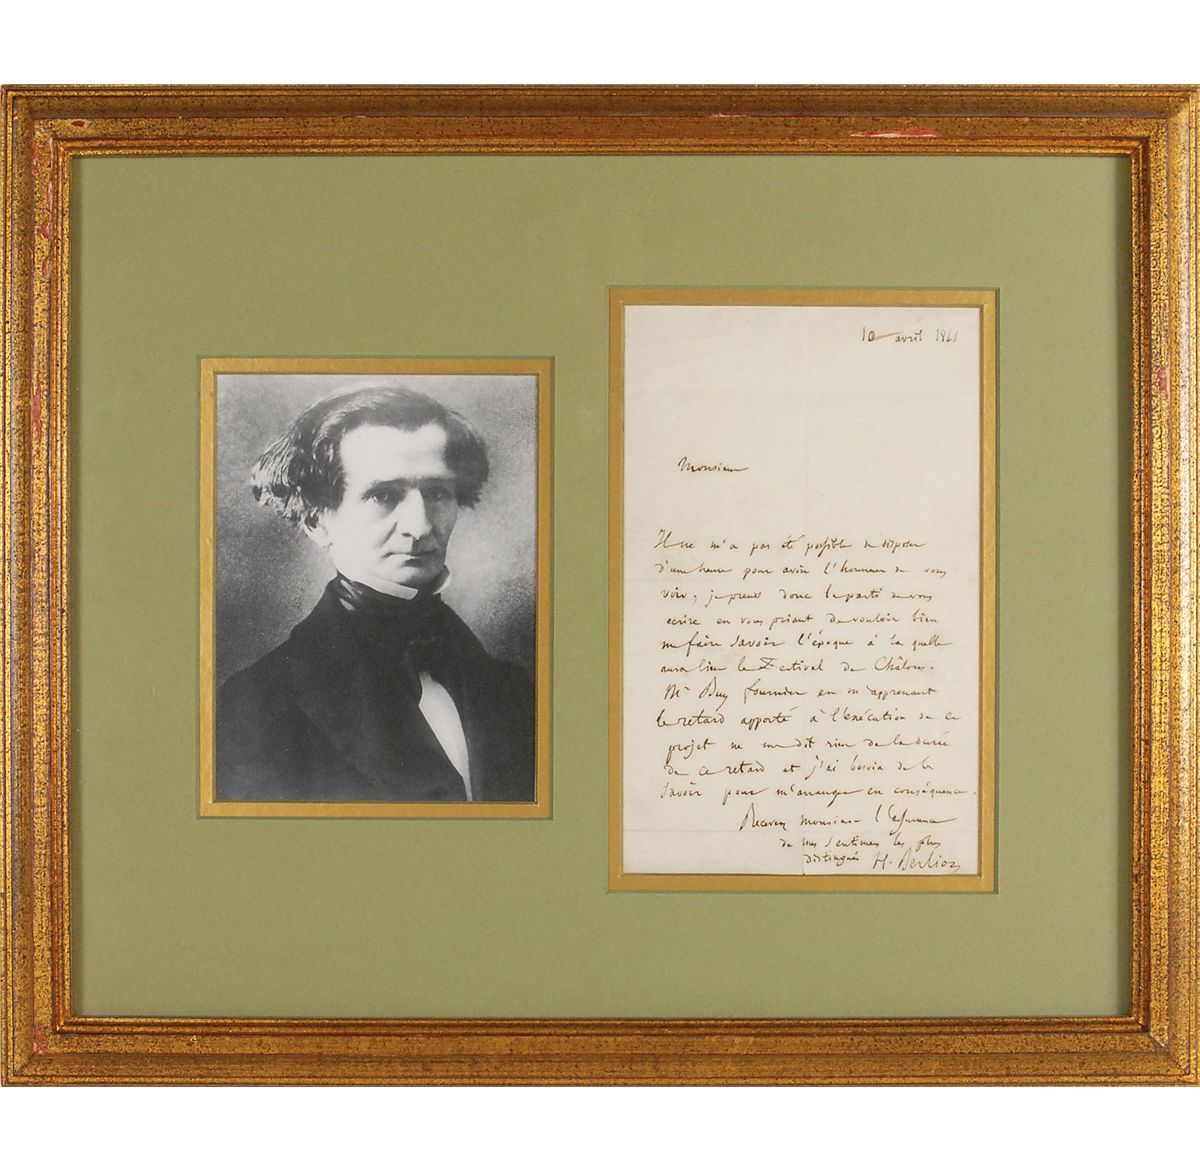 10 avril
Monsieur
Il ne m'a pas été possible de disposer
d'une heure pour avoir l'honneur de vous
voir; je prends donc le parti de vous
ecrire en vous priant de vouloir bien
me faire savoir l'époque à la quelle
aura lieu le Festival de Châlons.
Mr fournier en m'apprenant
le retard apporté à l'exécution de ce
projet ne me dit rien de la durée
de ce retard et j'ai besoin de la
savoir pour m'arranger en conséquence.
Recevez monsieur l'assurance
de mes sentimens les plus
distingués H. Berlioz